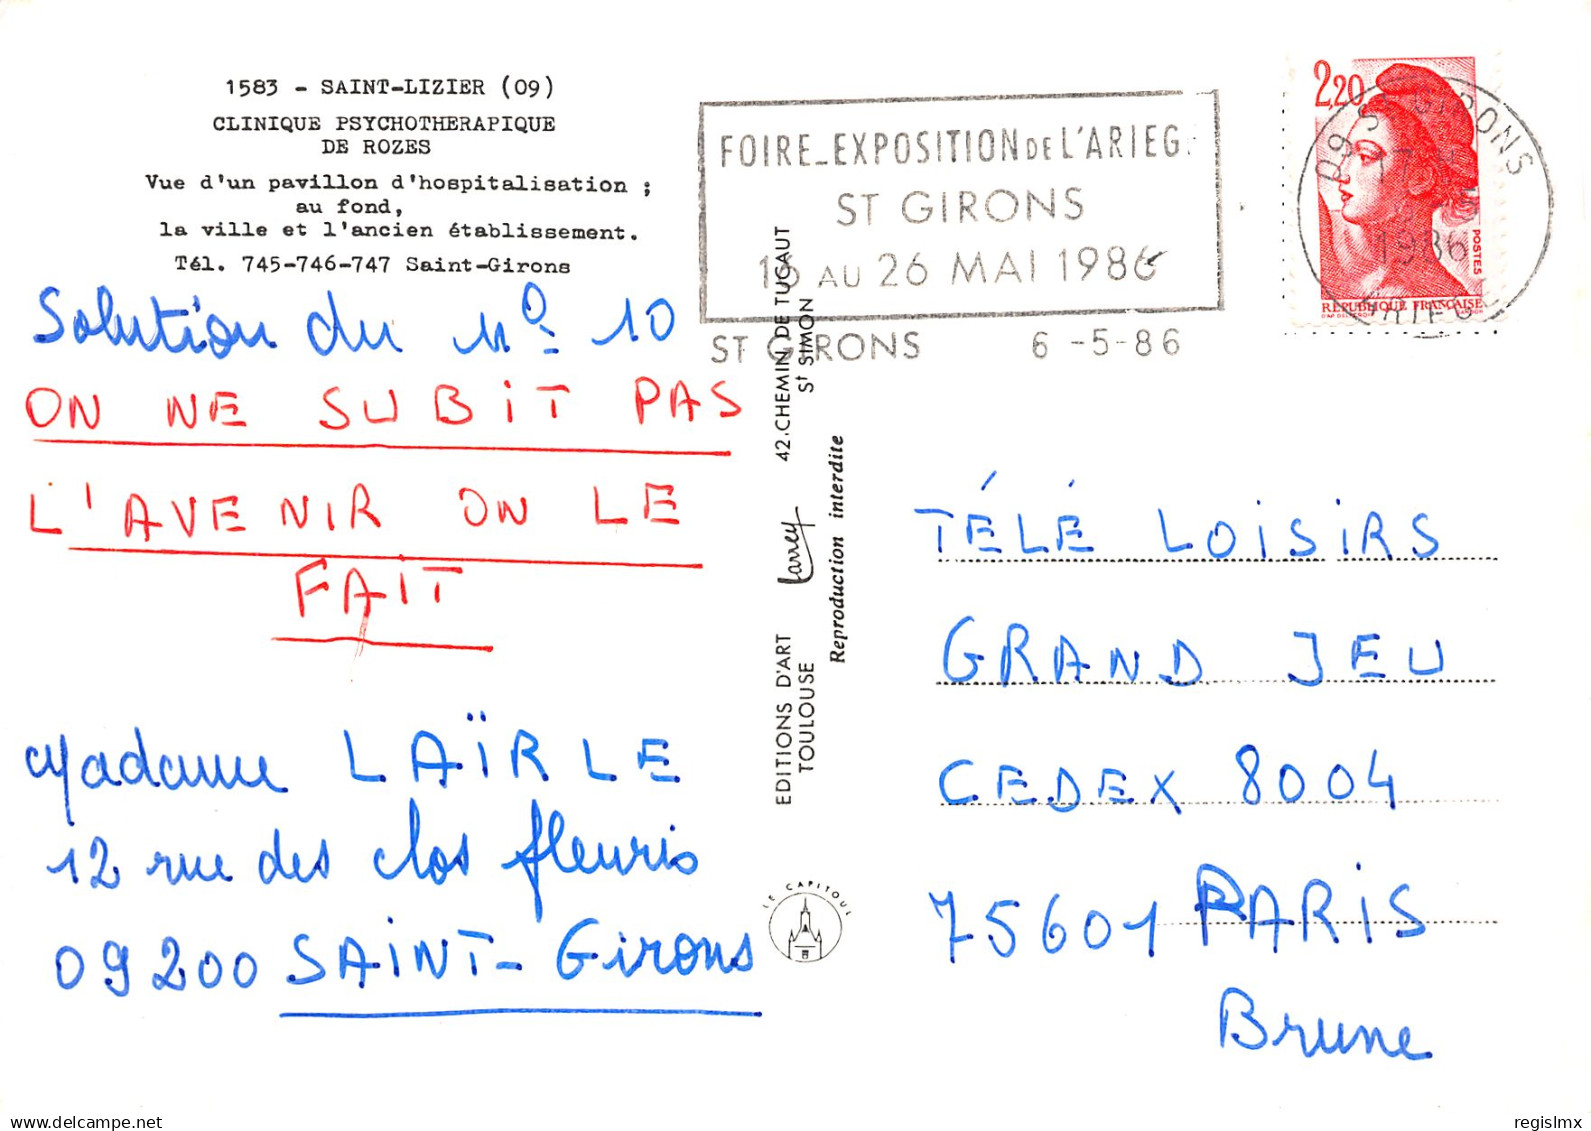 1583 - SAINT-LIZIER (09)
CLINIQUE PSYCHOTHERAPIQUE
DE ROZES
Vue d'un pavillon d'hospitalisation ;
au fond,
la ville et l'ancien établissement.
Tél. 745-746-747 Saint-Girons
Solution du No 10
ON NE SUBiT PAS
L'AVENIR ON LE
FAiT
Madame LAÏRLE
12 rue des clos fleuris
09200 SAiNT-Girons
FOIRE_EXPOSITION DE L'ARIEG.
ST GIRONS
16 AU 26 MAI 1986
ST GIRONS 6 -5-86
2,20
POSTES
REPUBLIQUE FRANÇAISE
09 ST GIRONS
17 H
1986
ARIEGE
EDITIONS D'ART Larrey 42.CHEMIN DE TUGAUT
TOULOUSE St SIMON
Reproduction interdite
LE CAPITOUL
TÉLÉ LOiSiRS
GRAND JEU
CEDEX 8004
75601 PARiS
Brune
regislmx
delcampe.net